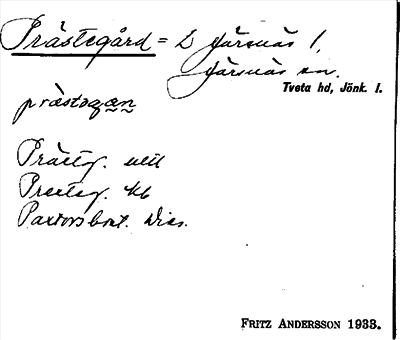 Prästegård = L Järsnäs 1,
Järsnäs sn.
Tveta hd, Jönk. l.
prästegan
Prästg.
Prestg. kb
Pastorsbost. Diss.
FRITZ ANDERSSON 1933.